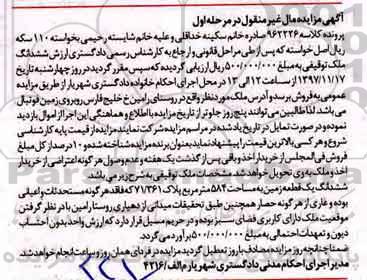 آگهی مزایده مال غیر منقول در مرحله اول
پرونده کلاسه ۹۶۲۲۲۶ صادره خانم سکینه خداقلی و علیه خانم شایسته رحیمی بخواسته ۱۱۰ سکه
ریال اصل خواسته که پس از طی مراحل قانونی و ارجاع به کارشناس رسمی دادگستری ارزش ششدانگ
ملک توقیفی به مبلغ ۵۰۰/۰۰۰/۰۰۰ ریال ارزیابی گردیده که سپس مقرر گردید در روز چهارشنبه تاریخ
۱۳۹۷/۱۱/۱۷ از ساعت ۱۲ الی ۱۳ در محل اجرای احکام خانواده دادگستری شهریار از طریق مزایده
عمومی به فروش برسد و آدرس ملک مورد نظر واقع در روستای رامین خ خلیج فارس روبروی زمین فوتبال
می باشد لذا طالبین می توانند پنج روز جلوتر از تاریخ مزایده با اطلاع و هماهنگی این اجرا از اموال بازدید
نموده و در صورت تمایل در تاریخ یاد شده در مراسم مزایده شرکت نمایند مزایده از قیمت پایه کارشناسی
شروع و هر کسی بالاترین قیمت را پیشنهاد نماید بعنوان برنده مزایده شناخته شده ۱۰ درصد از کل مبلغ
فروش فی المجلس از خریدار اخذ و باقی پس از گذشت یک هفته و عدم وصول هر گونه اعتراضی از خریدار
اخذ و ملک به وی تحویل خواهد شد مشخصات ملک توقیفی به شرح زیر می باشد
ششدانگ یک قطعه زمین به مساحت ۵۸۴ متر مربع پلاک ۷۱/۳۶۱ که فاقد هر گونه مستحدثات و اعیانی
بوده و عاری از هر گونه حصار همچنین طبق تحقیقات میدانی از دهیاری روستا رامین با در نظر گرفتن
موقعیت ملک دارای کاربری فضای سبز بوده و در حریم مسیل قرار دارد که ارزش واحد بدون احتساب
دیون و تعهدات احتمالی به مبلغ ۵۰۰/۰۰۰/۰۰۰ برآورد می گردد.
ضمنا چنانچه روز مزایده مصادف با روز تعطیل گردید مزایده در فردای همان روز و ساعت انجام خواهد شد
مدیر اجرای احکام مدنی دادگستری شهریار م الف/۴۲۱۶